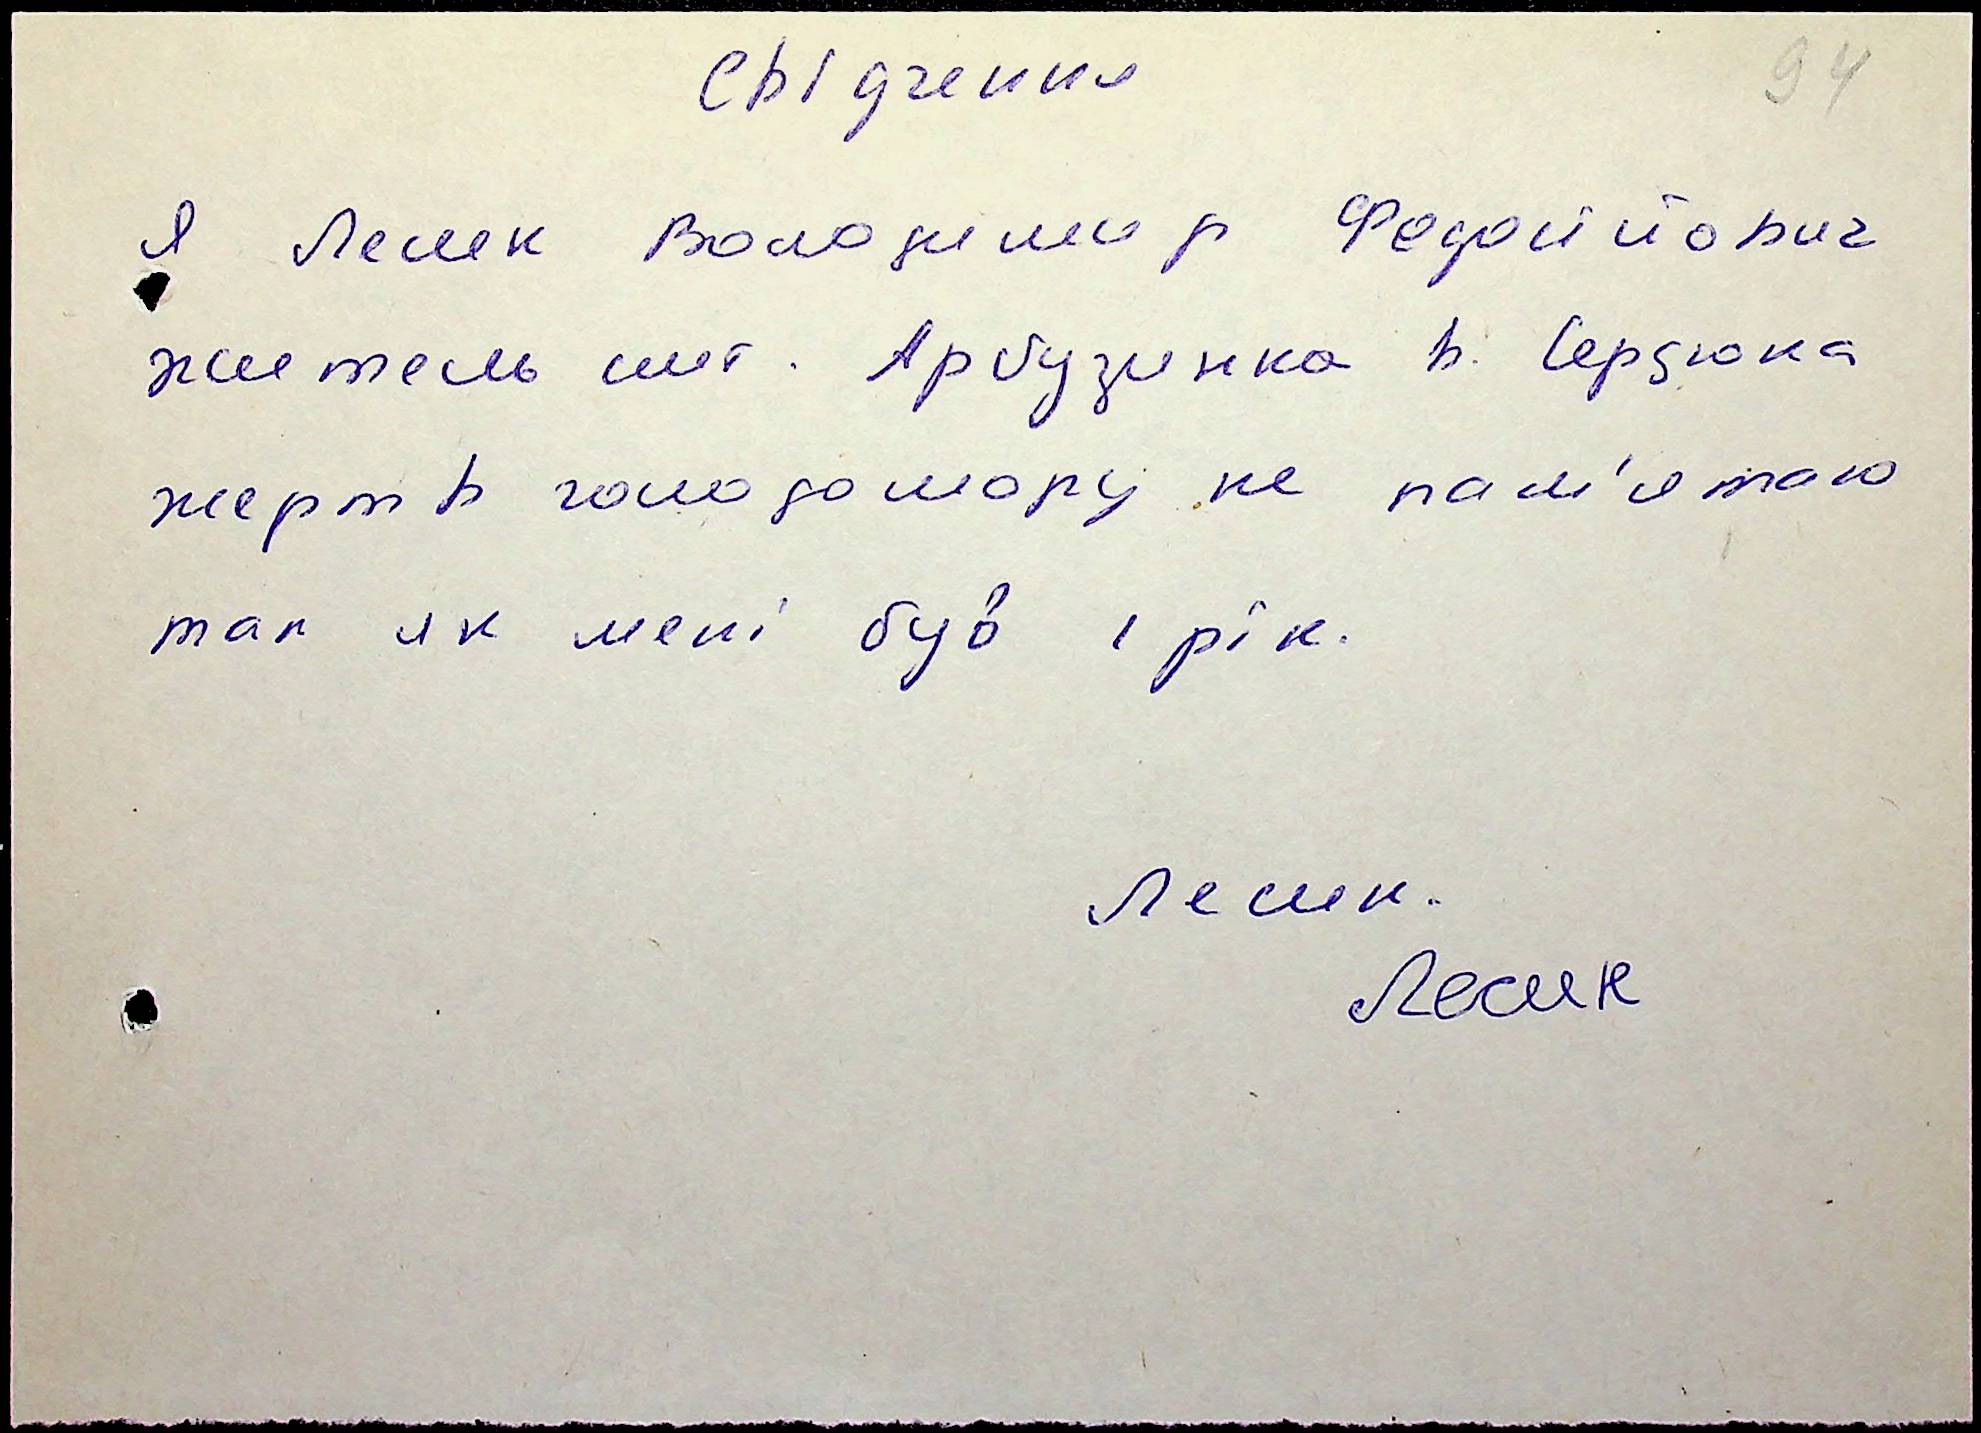 Свідчення
94
Я Лесик Володимир Федоййович
житель смт. Арбузинка в. Сердюка
жертв голодомору не пам'ятаю
так як мені був 1 рік.
Лесик.
Лесик